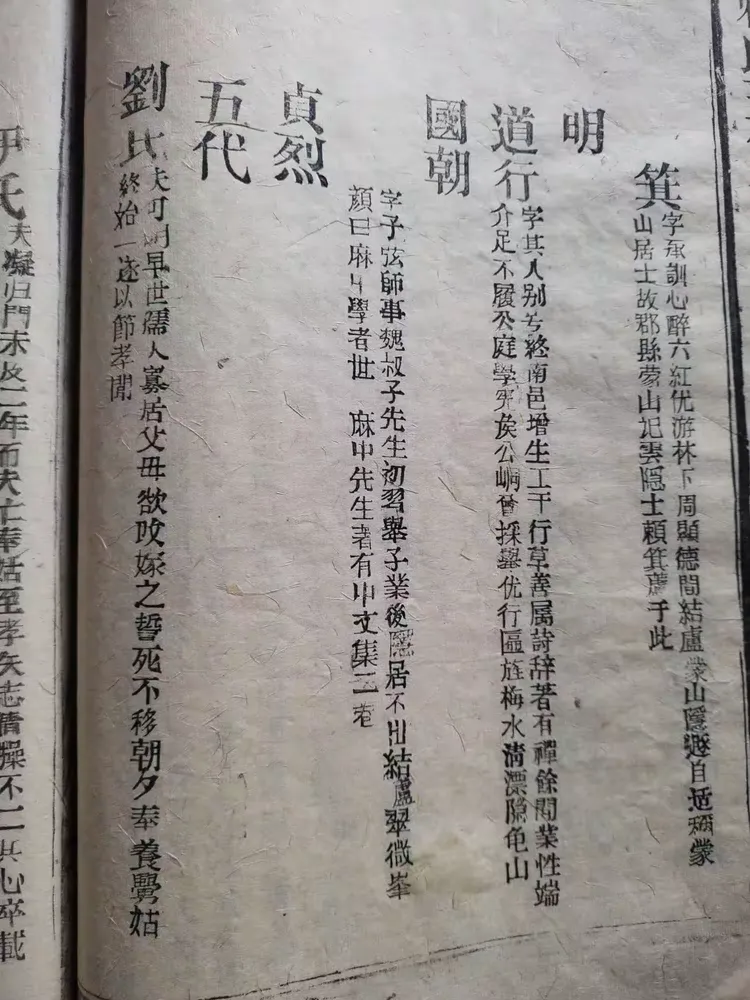 箕
字承訓心醉六紅优游林下周顯德間結廬蒙山隱遯自适称蒙
山居士故郡縣蒙山記雲隱士賴箕廬于此
明
道行
字其人别号終南邑增生工于行草善属詩辞著有禪餘間業性端
介足不履公庭學憲侯公峒曾採舉优行區旌梅水清漂隐龟山
國朝
字子弦師事魏叔子先生初習舉子業後隱居不出結廬翠微峯
顔曰麻中學者世 麻中先生著有中文集二卷
貞烈
五代
劉氏
夫可明早世孺人寡居父母欲攺嫁之誓死不移朝夕奉養舅姑
終始一逐以節孝聞
尹氏
夫凝归門未及二年而夫亡奉姑至孝矢志情操不二其心卒載